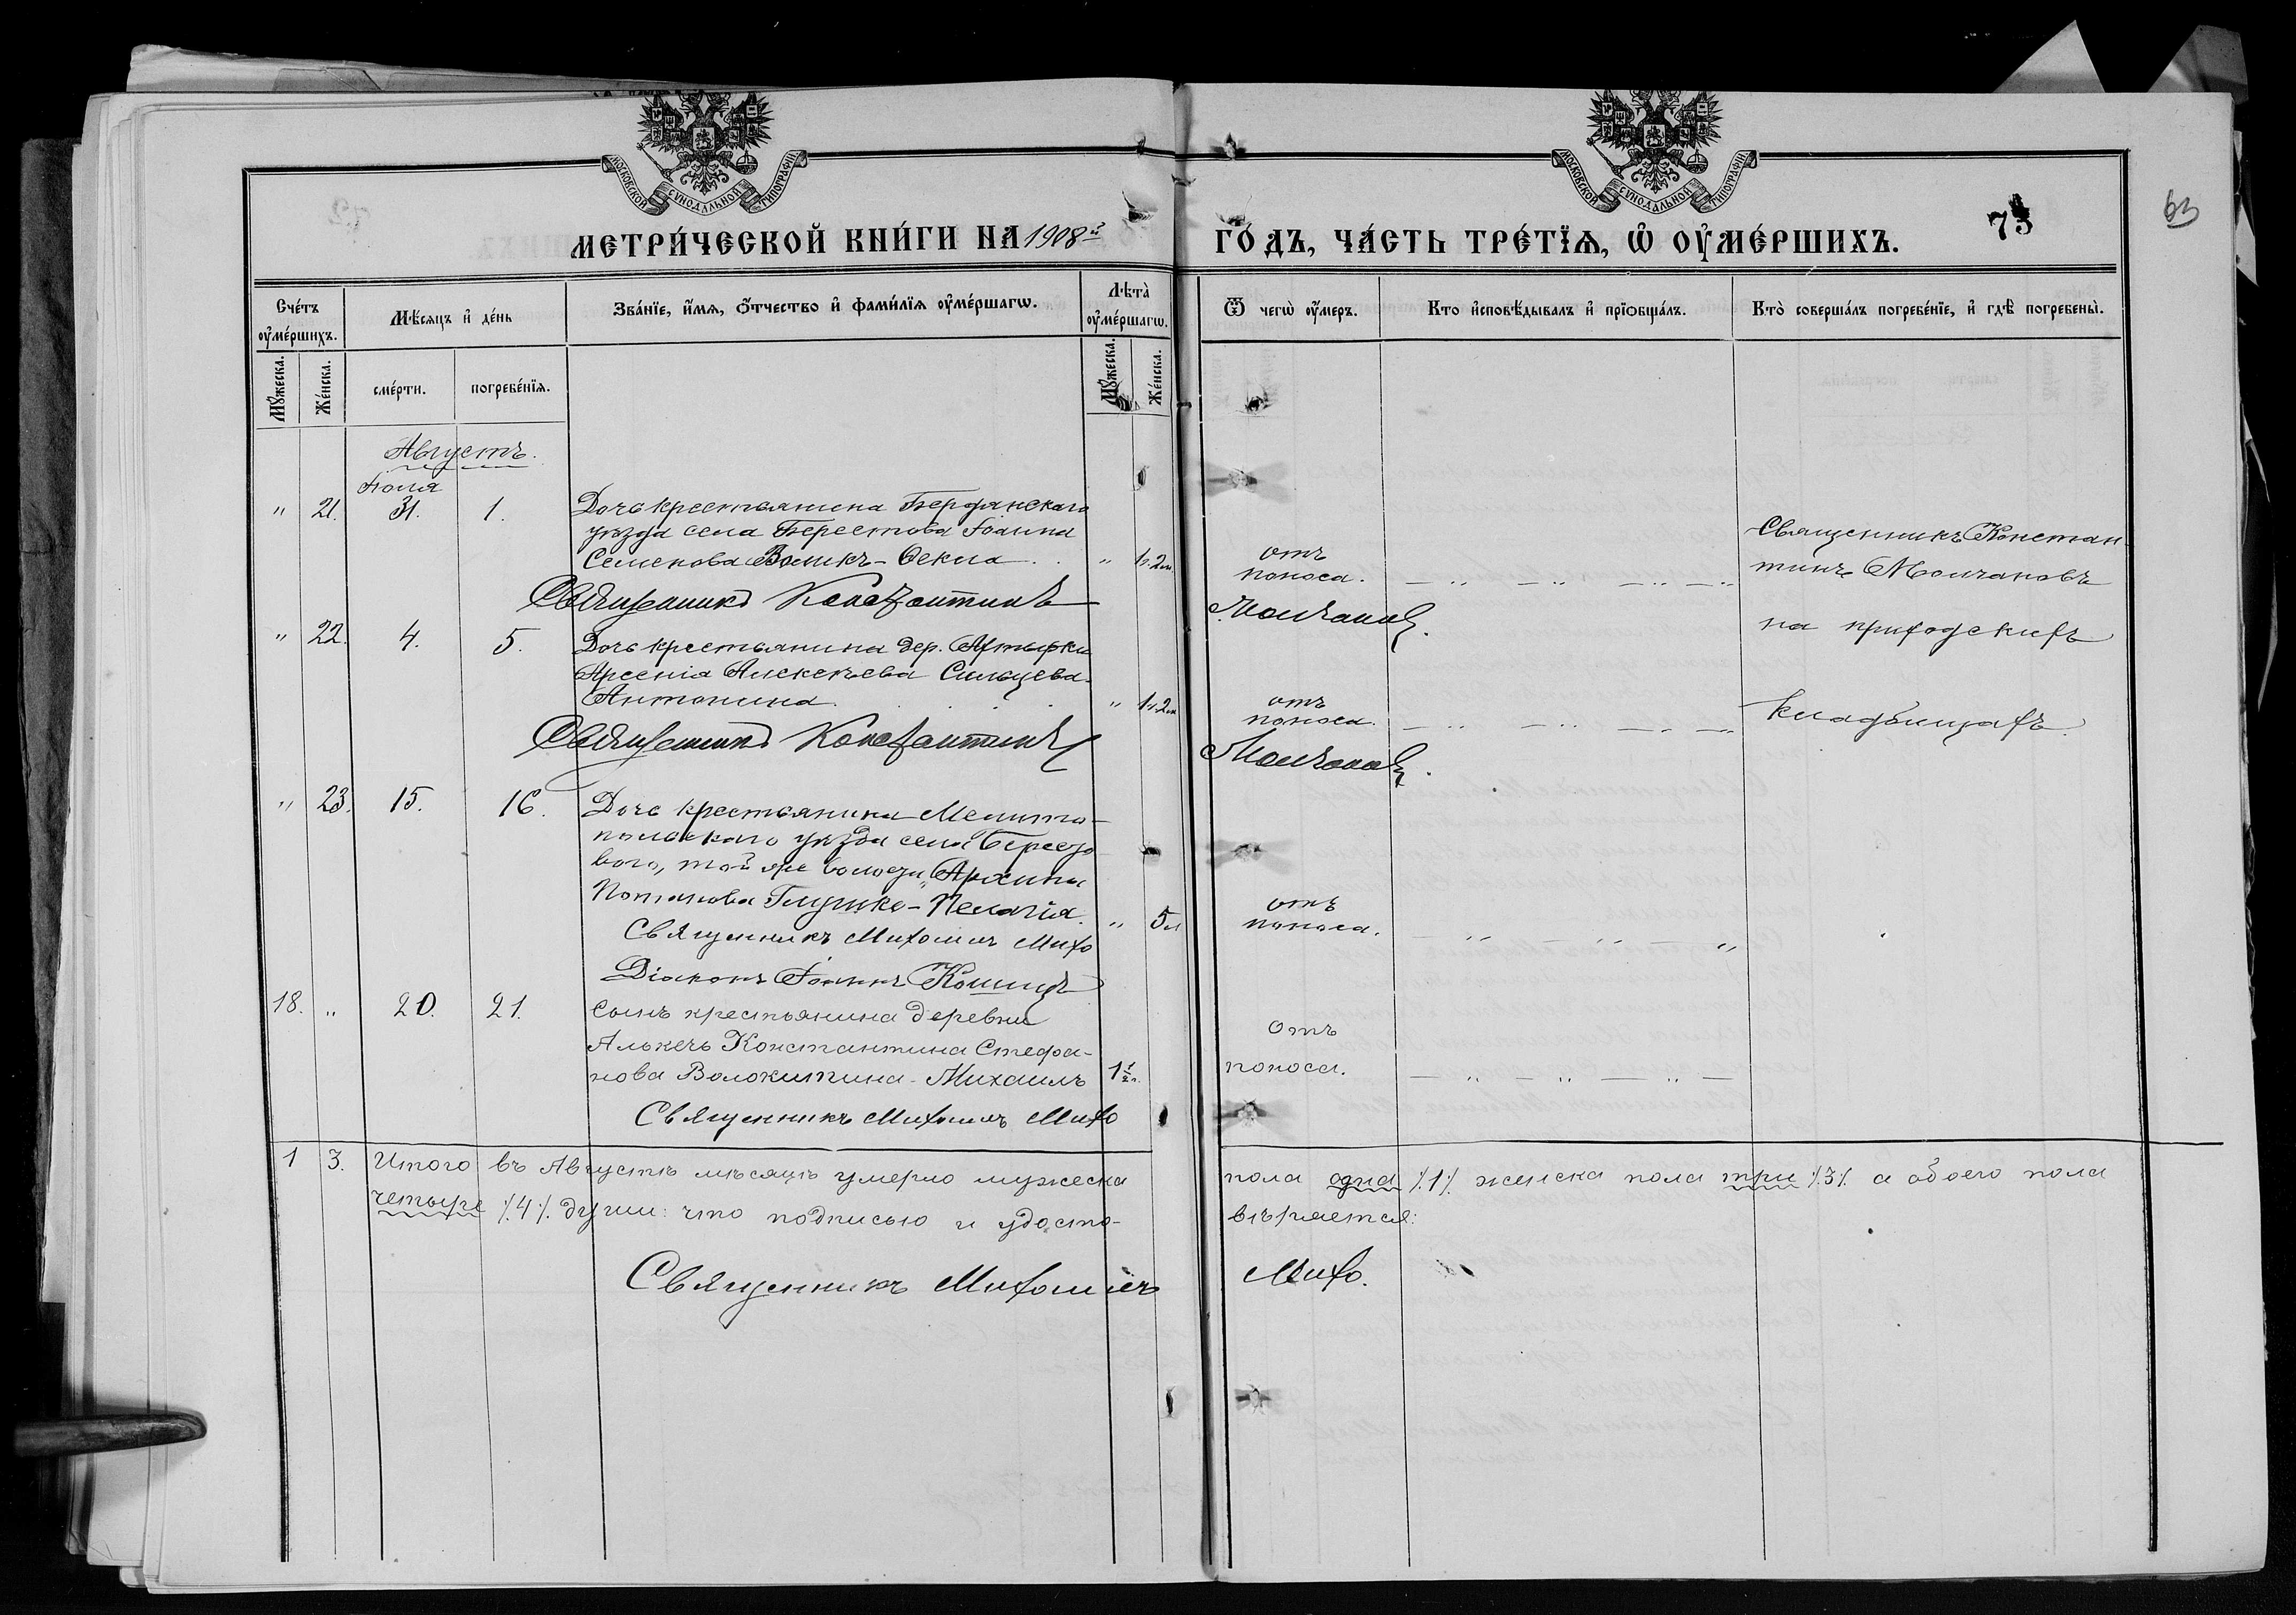 МОСКОВСКОЙ СѴНОДАЛЬНОЙ ТИПОГРАФІИ
МОСКОВСКОЙ СѴНОДАЛЬНОЙ ТИПОГРАФІИ
МЕТРИ́ЧЕСКОЙ КНИ́ГИ НА 1908й
ГО́ДЪ, ЧА́СТЬ ТРЕ́ТЇѦ, Ѡ ОУ҆МЕ́РШИХЪ.
73
63
Сче́тъ оу҆ме́ршихъ.
Мѣ́сяцъ и҆ де́нь
Зва́нїе, и҆́мѧ, ѻ҆́тчество и҆ фами́лїѧ оу҆ме́ршагѡ.
Лѣта̀ оу҆ме́ршагѡ.
Ѿ чегѡ̀ оу҆́меръ.
Кто и҆сповѣ́дывалъ и҆ прїѡбща́лъ.
Кто̀ соверша́лъ погребе́нїе, и҆ гдѣ̀ погребены̀.
Мꙋ́жеска.
Же́нска.
сме́рти.
погребе́нїѧ.
Мꙋ́жеска.
Же́нска.
Августъ.
Іюля
" 21. 31. 1. Дочь крестьянина Бердянскаго
уѣзда села Берестова Іоанна
Семенова Воликъ - Ѳекла . . " 1г.2м. отъ поноса. — " — " — " — "
Священникъ Константинъ Молчановъ.
Священникъ Констан-
тинъ Молчановъ
на приходскихъ
кладбищахъ.
" 22. 4. 5. Дочь крестьянина дер.
Арсенія Алексѣева
Антонина . . . " 1г.2м отъ поноса. — " — " — " — "
Священникъ Константинъ Молчановъ.
" 23. 15. 16. Дочь крестьянина Мелито-
польскаго уѣзда села Березо
вого, той же волости, Архипа
Потапова Глушко - Пелагія. " 5л отъ поноса. — " — " — "
Священникъ Михаилъ Михо
Діаконъ Іоаннъ Кошицъ
18. " 20. 21. Сынъ крестьянина деревни
Алькечъ Константина Стефа-
нова Волокитина - Михаилъ 1½г. отъ поноса. — " — " — " —
Священникъ Михаилъ Михо
1 3. Итого въ Августѣ мѣсяцѣ умерло мужеска пола одна /.1/. женска пола три /.3/. а обоего пола
четыре /.4/. души: что подписью и удосто- вѣряется:
Священникъ Михаилъ Михо.